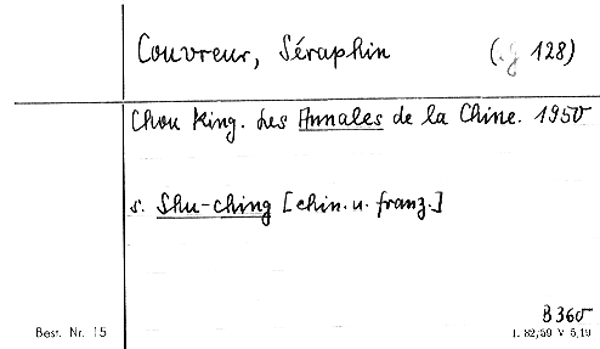 Couvreur, Séraphin (. g 128)
Chou King. Les Annales de la Chine. 1950
s. Shu-ching [chin. u. franz.]
B 360
Best. Nr. 15
I. 82/50 V 5,19